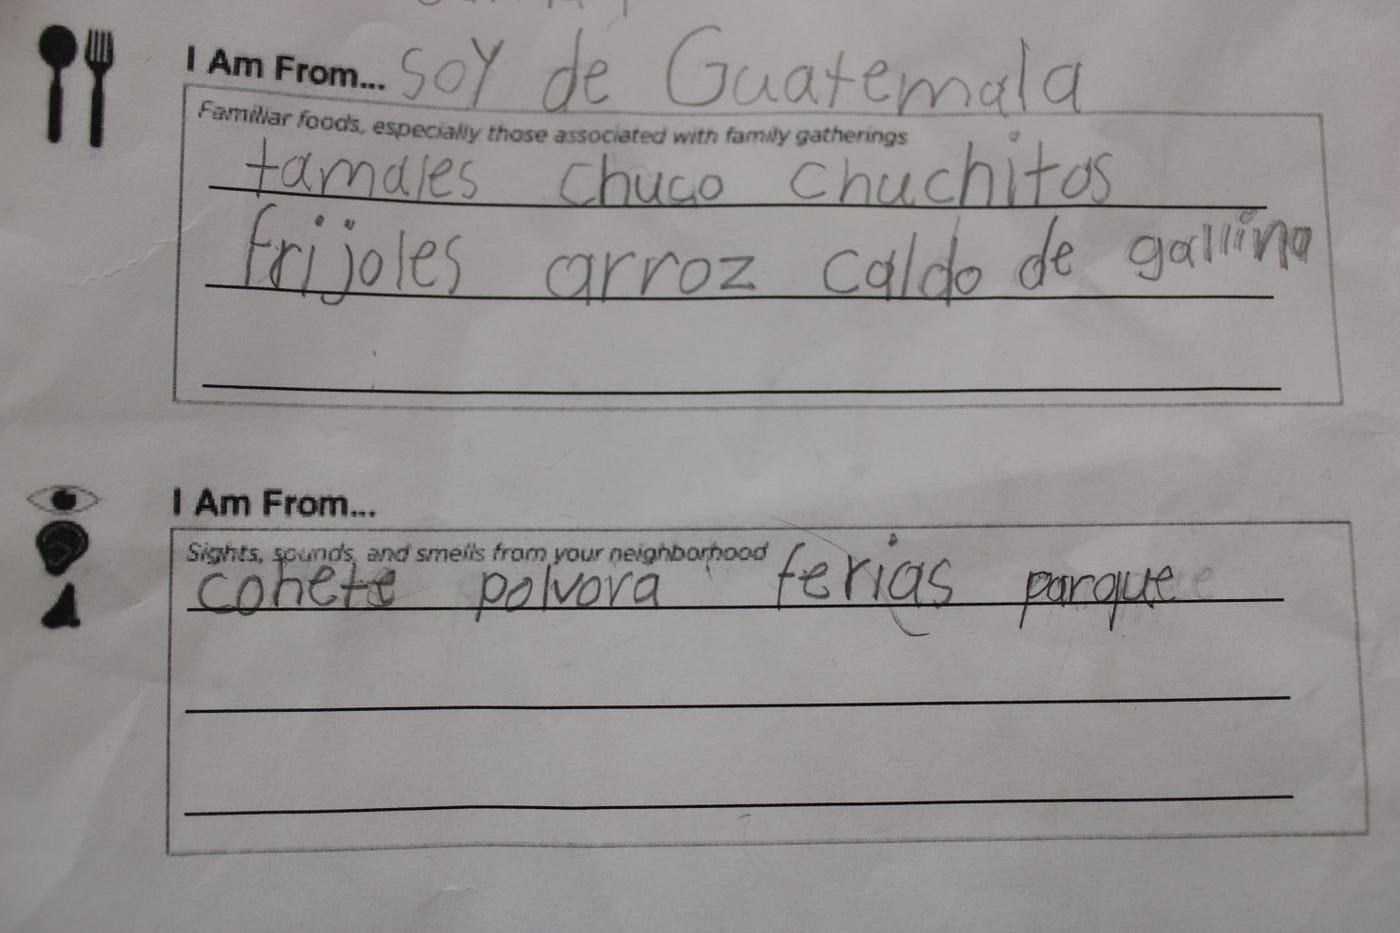 I Am From... Soy de Guatemala
Familiar foods, especially those associated with family gatherings
tamales chuco chuchitos
frijoles arroz caldo de gallina
I Am From...
Sights, sounds, and smells from your neighborhood
cohete polvora ferias parque